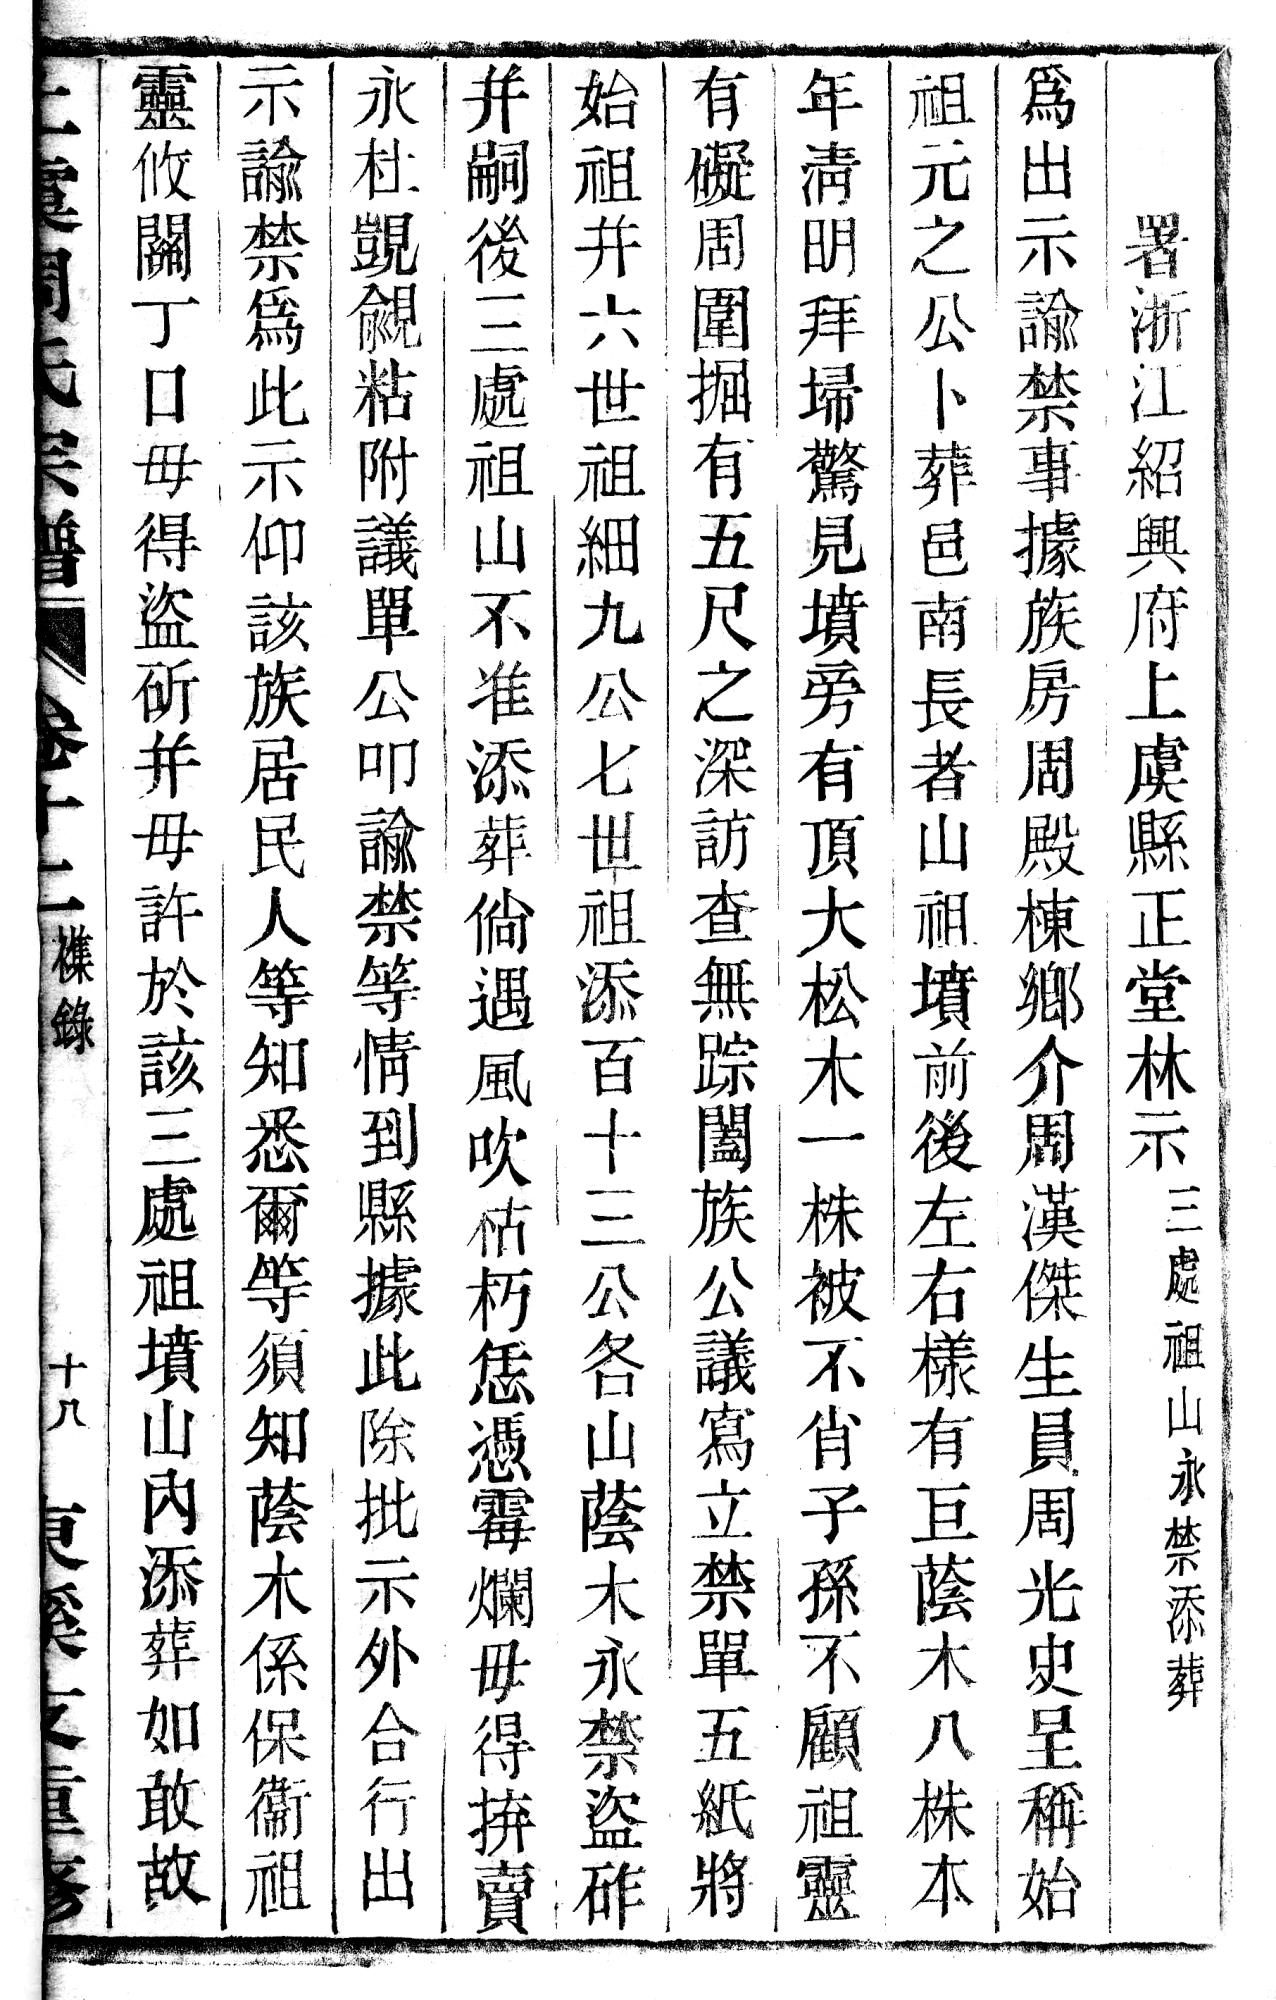 署浙江紹興府上虞縣正堂林示三處祖山永禁添葬
爲出示諭禁事據族房周殿棟鄉介周漢傑生員周光史呈稱始
祖元之公卜葬邑南長者山祖墳前後左右樣有巨蔭木八株本
年淸明拜埽驚見墳旁有頂大松木一株被不肖子孫不顧祖靈
有礙周圍掘有五尺之深訪查無踪闔族公議寫立禁單五紙將
始祖并六世祖細九公七世祖添百十三公各山蔭木永禁盜砟
并嗣後三處祖山不准添葬倘遇風吹枯朽恁憑霉爛毋得拚賣
永杜覬覦粘附議單公叩諭禁等情到縣據此除批示外合行出
示諭禁爲此示仰該族居民人等知悉爾等須知蔭木係保衞祖
靈攸關丁口毋得盜斫并毋許於該三處祖墳山內添葬如敢故
上虞周氏宗譜 卷十二 襍錄 十八 東溪支重修